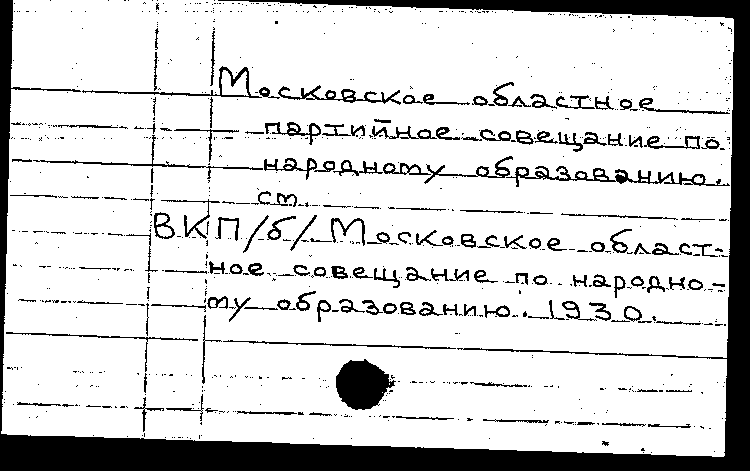 Московское областное
партийное совещание по
народному образованию.
см.
ВКП/б/. Московское област-
ное совещание по народно-
му образованию. 1930.